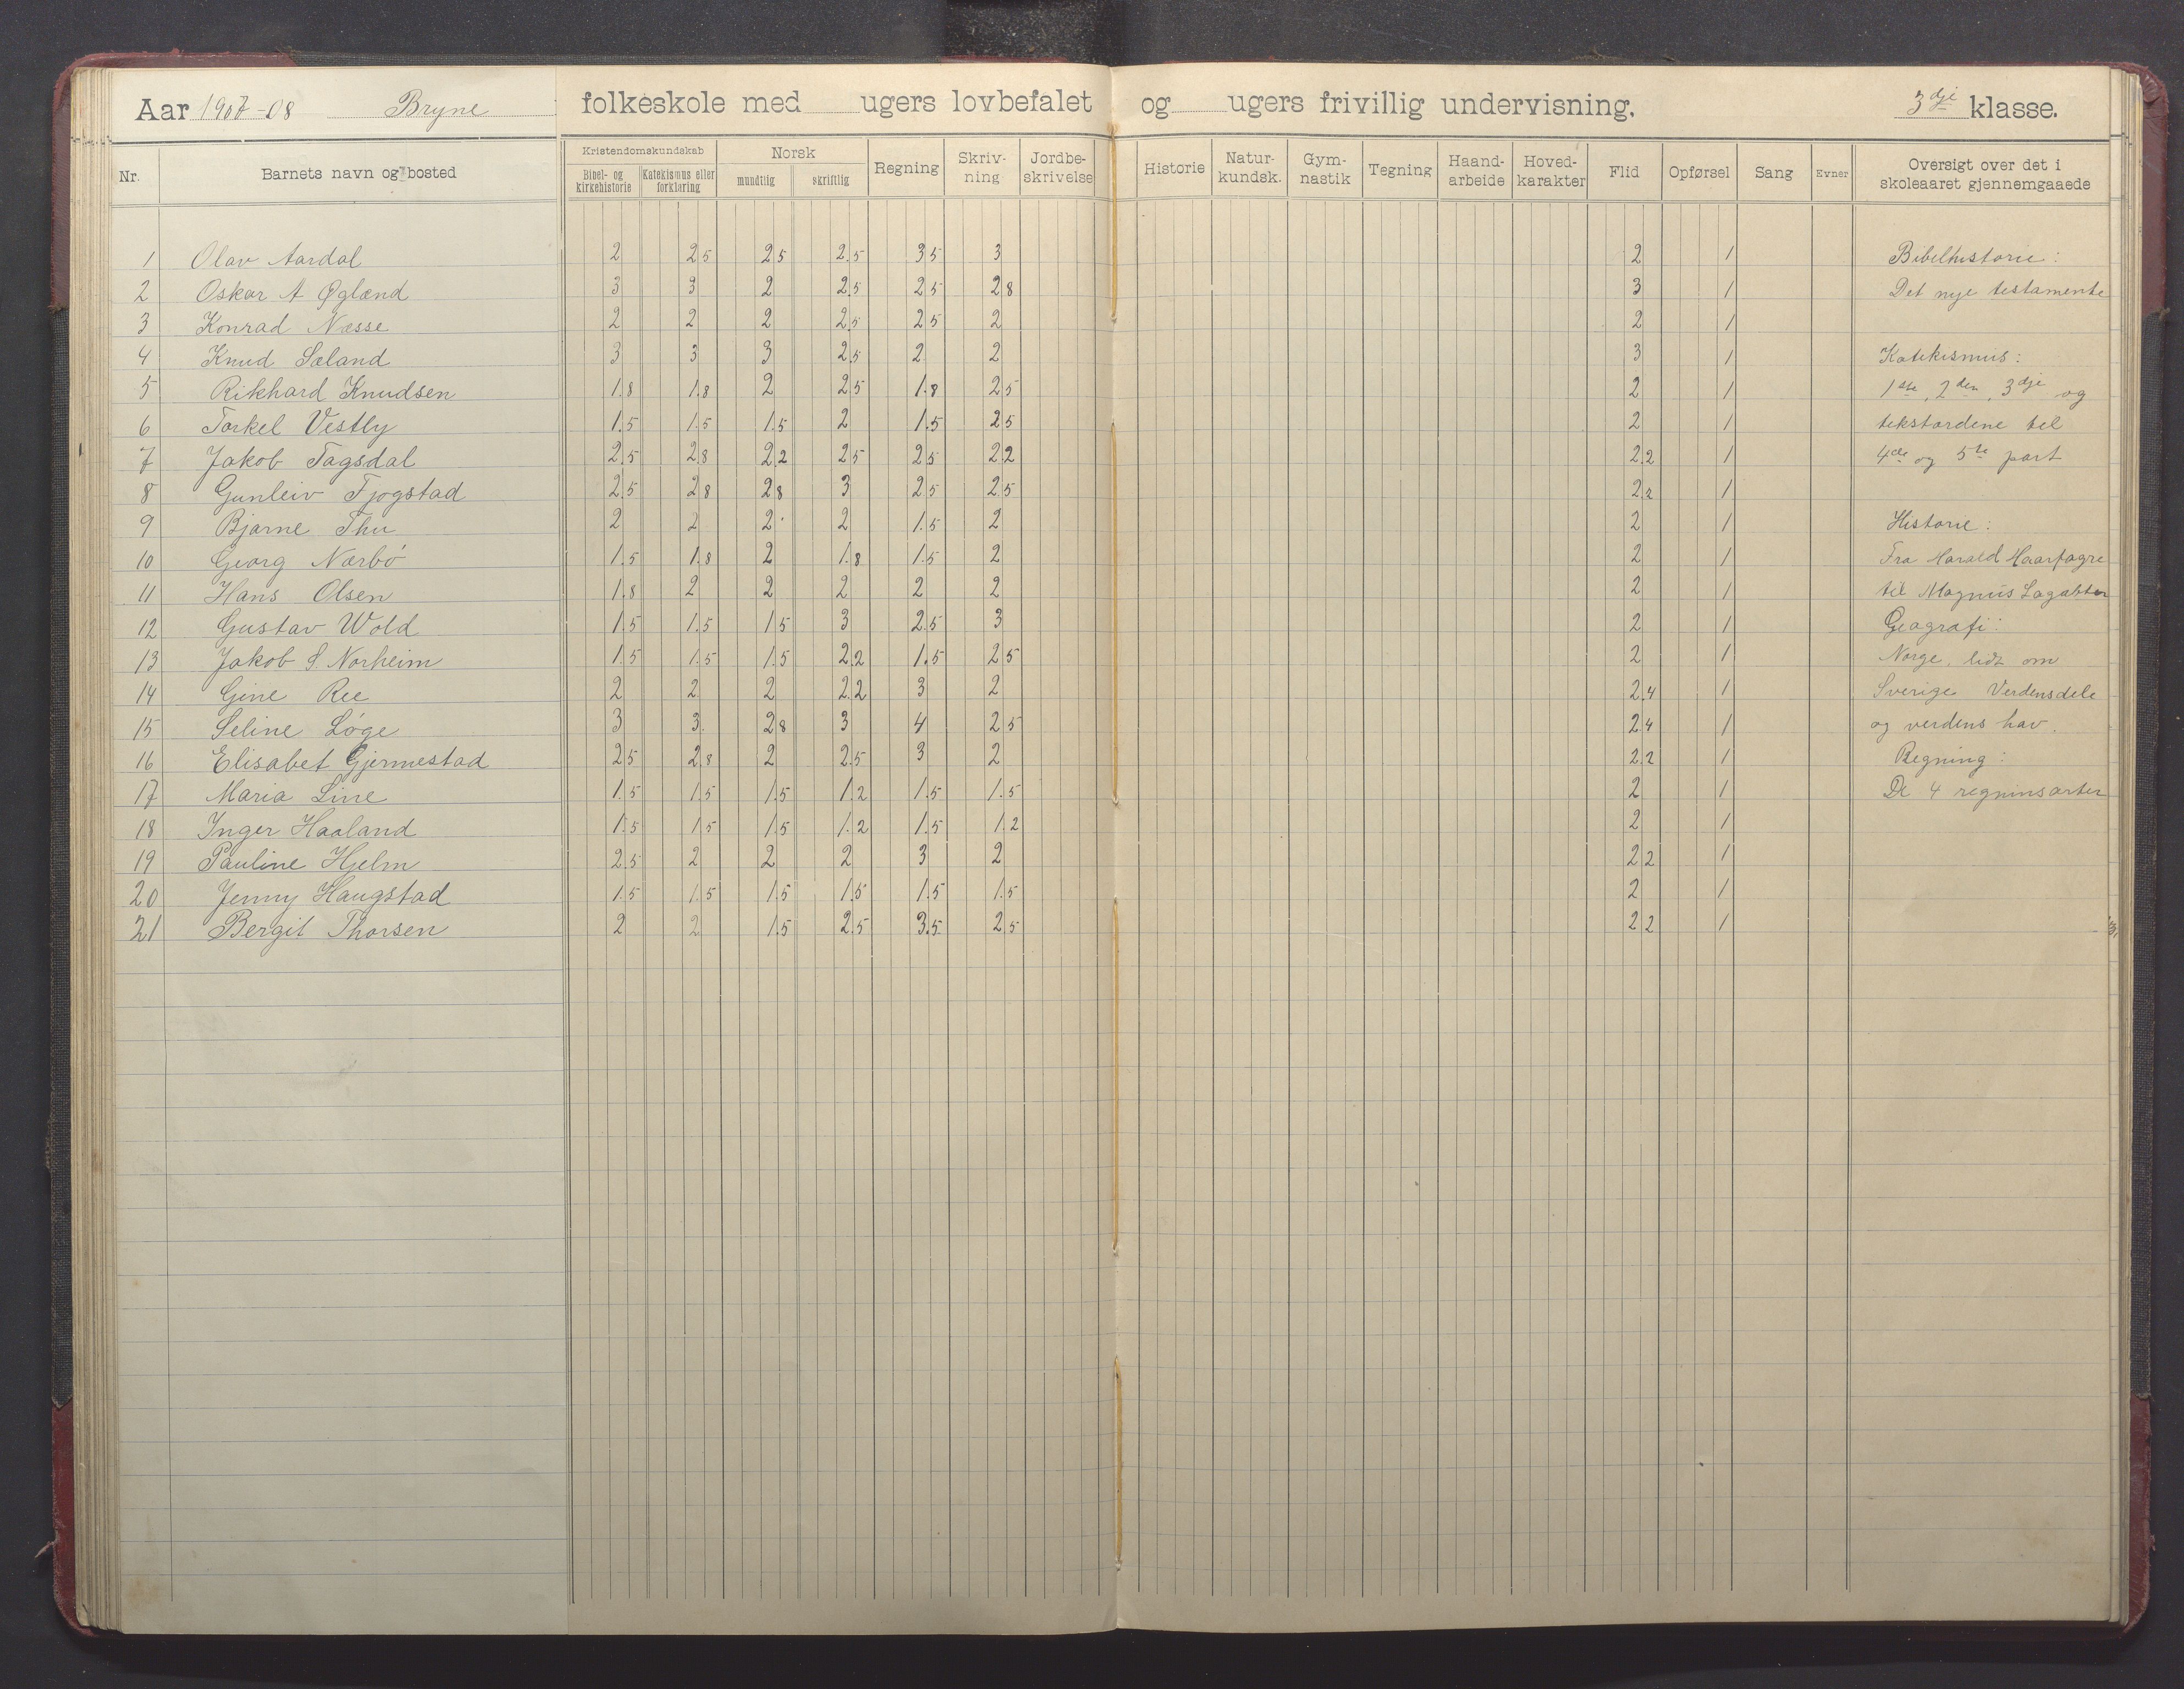 Aar 1907-08 Bryne folkeskole med ugers lovbefalet og ugers frivillig undervisning. 3dje klasse.
Nr. Barnets navn og bosted Kristendomskundskab Bibel- og kirkehistorie Katekismus eller forklaring Norsk mundtlig skriftlig Regning Skriv-ning Jordbe-skrivelse Historie Natur-kundsk. Gym-nastik Tegning Haand-arbeide Hoved-karakter Flid Opførsel Sang Evner Oversigt over det i skoleaaret gjennemgaaede
1 Olav Aardal 2 2.5 2.5 2.5 3.5 3 2 1 Bibelhistorie:
2 Oskar A Øglænd 3 3 2 2.5 2.5 2.8 3 1 Det nye testamente
3 Konrad Næsse 2 2 2 2.5 2.5 2 2 1
4 Knud Sæland 3 3 3 2.5 2 2 3 1 Katekismus:
5 Rikhard Knudsen 1.8 1.8 2 2.5 1.8 2.5 2 1 1ste, 2den, 3dje og
6 Torkel Vestly 1.5 1.5 1.5 2 1.5 2.5 2 1 tekstordene til
7 Jakob Tagsdal 2.5 2.8 2.2 2.5 2.5 2.2 2.2 1 4de og 5te part
8 Gunleiv Fjogstad 2.5 2.8 2.8 3 2.5 2.5 2.2 1
9 Bjarne Thu 2 2 2 2 1.5 2 2 1 Historie:
10 Georg Nærbö 1.5 1.8 2 1.8 1.5 2 2 1 Fra Harald Haarfagre
11 Hans Olsen 1.8 2 2 2 2 2 2 1 til Magnus Lagabøter
12 Gustav Wold 1.5 1.5 1.5 3 2.5 3 2 1 Geografi:
13 Jakob S. Norheim 1.5 1.5 1.5 2.2 1.5 2.5 2 1 Norge, lidt om
14 Gine Ree 2 2 2 2.2 3 2 2.4 1 Sverige Verdensdele
15 Seline Löge 3 3 2.8 3 4 2.5 2.4 1 og verdens hav.
16 Elisabet Gjermestad 2.5 2.8 2 2.5 3 2 2.2 1 Regning:
17 Maria Line 1.5 1.5 1.5 1.2 1.5 1.5 2 1 De 4 regninsarter
18 Inger Haaland 1.5 1.5 1.5 1.2 1.5 1.2 2 1
19 Pauline Hjelm 2.5 2 2 2 3 2 2.2 1
20 Jenny Haugstad 1.5 1.5 1.5 1.5 1.5 1.5 2 1
21 Bergit Thorsen 2 2 1.5 2.5 3.5 2.5 2.2 1